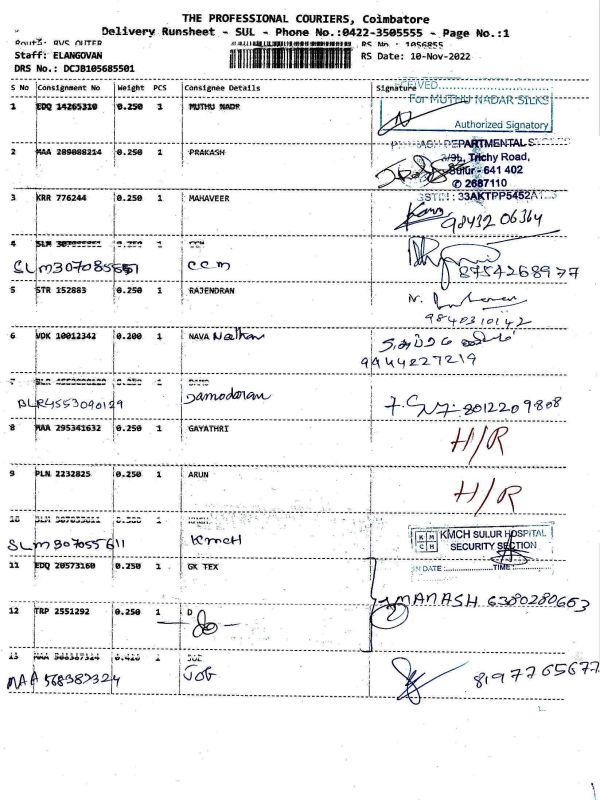 THE PROFESSIONAL COURIERS, Coimbatore
Delivery Runsheet - SUL - Phone No.:0422-3505555 - Page No.:1
Route: BVS OUTER RS No : 1056855
Staff: ELANGOVAN RS Date: 10-Nov-2022
DRS No.: DCJB105685501
S No Consignment No Weight PCS Consignee Details Signature
For MUTHU NADAR SILKS
1 EDQ 14265310 0.250 1 MUTHU NADR
Authorized Signatory
DEPARTMENTAL
2 MAA 289088214 0.250 1 PRAKASH
Trichy Road,
Sulur - 641 402
✆ 2687110
3 KRR 776244 0.250 1 MAHAVEER
33AKTPP5452A
98432 06364
4 CCM
SLM307085551 CCM 8754268977
5 STR 152883 0.250 1 RAJENDRAN
9840310142
6 VDK 10012342 0.200 1 NAVA Nathan
9444227219
7
BLR4553090129 Damodaran 8012209808
8 MAA 295341632 0.250 1 GAYATHRI H/R
9 PLN 2232825 0.250 1 ARUN H/R
10 KMCH
SLM307055611 KMCH
KMCH SULUR HOSPITAL
SECURITY SECTION
IN DATE: TIME:
11 EDQ 20573160 0.250 1 GK TEX
MANASH 6380280663
12 TRP 2551292 0.250 1 D
13
MAA 568387324 JOB 8197765677